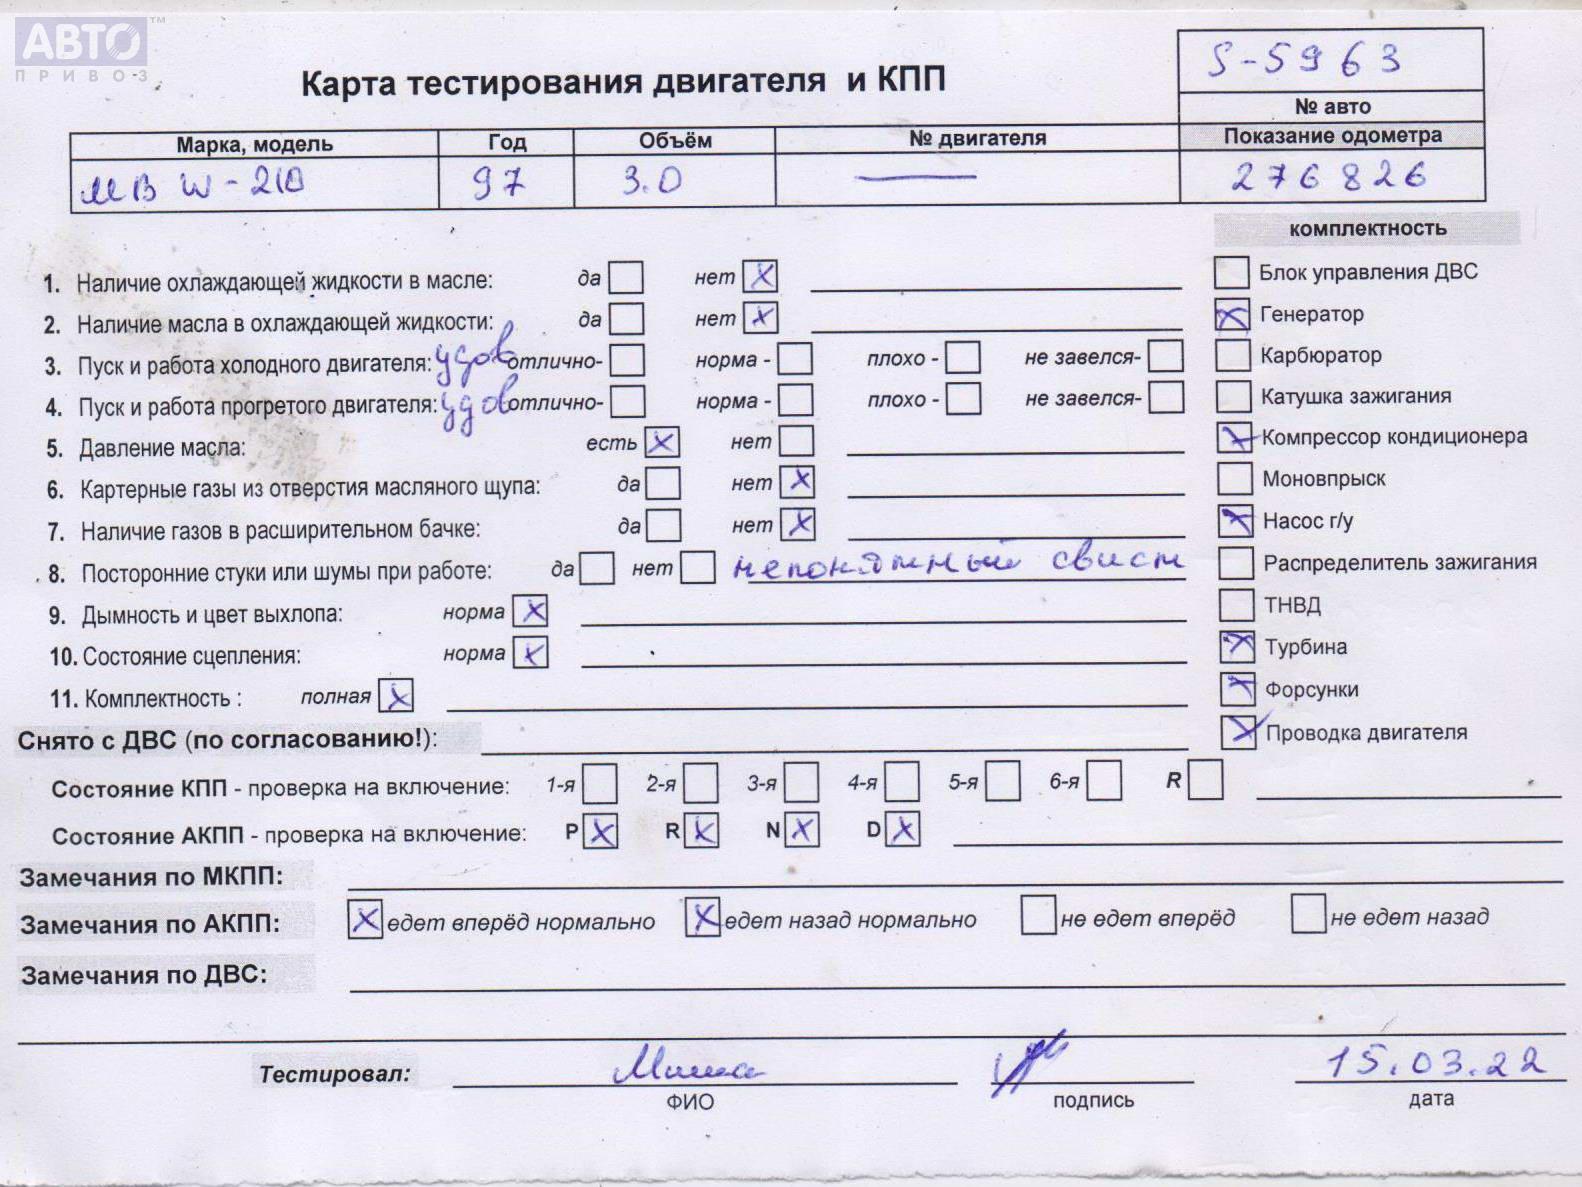 АВТО™
ПРИВОЗ
S-5963
Карта тестирования двигателя и КПП
№ авто
Марка, модель Год Объём № двигателя Показание одометра
МВ W-210 97 3.0 — 276826
комплектность
1. Наличие охлаждающей жидкости в масле: да нет X
Блок управления ДВС
2. Наличие масла в охлаждающей жидкости: да нет X
X Генератор
3. Пуск и работа холодного двигателя: удов отлично- норма - плохо - не завелся-
Карбюратор
4. Пуск и работа прогретого двигателя: удов отлично- норма - плохо - не завелся-
Катушка зажигания
5. Давление масла: есть X нет
X Компрессор кондиционера
6. Картерные газы из отверстия масляного щупа: да нет X
Моновпрыск
7. Наличие газов в расширительном бачке: да нет X
X Насос г/у
8. Посторонние стуки или шумы при работе: да нет непонятный свист
Распределитель зажигания
9. Дымность и цвет выхлопа: норма X
ТНВД
10. Состояние сцепления: норма X
X Турбина
11. Комплектность : полная X
X Форсунки
Снято с ДВС (по согласованию!):
X Проводка двигателя
Состояние КПП - проверка на включение: 1-я 2-я 3-я 4-я 5-я 6-я R
Состояние АКПП - проверка на включение: P X R X N X D X
Замечания по МКПП:
Замечания по АКПП: X едет вперёд нормально X едет назад нормально не едет вперёд не едет назад
Замечания по ДВС:
Тестировал: Миша 15.03.22
ФИО подпись дата